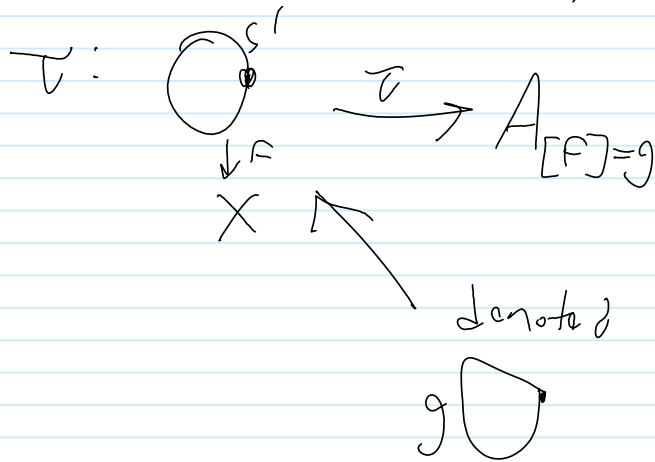 τ : S¹ τ → A_{[F]=g}
↓ F
X
denoted
g